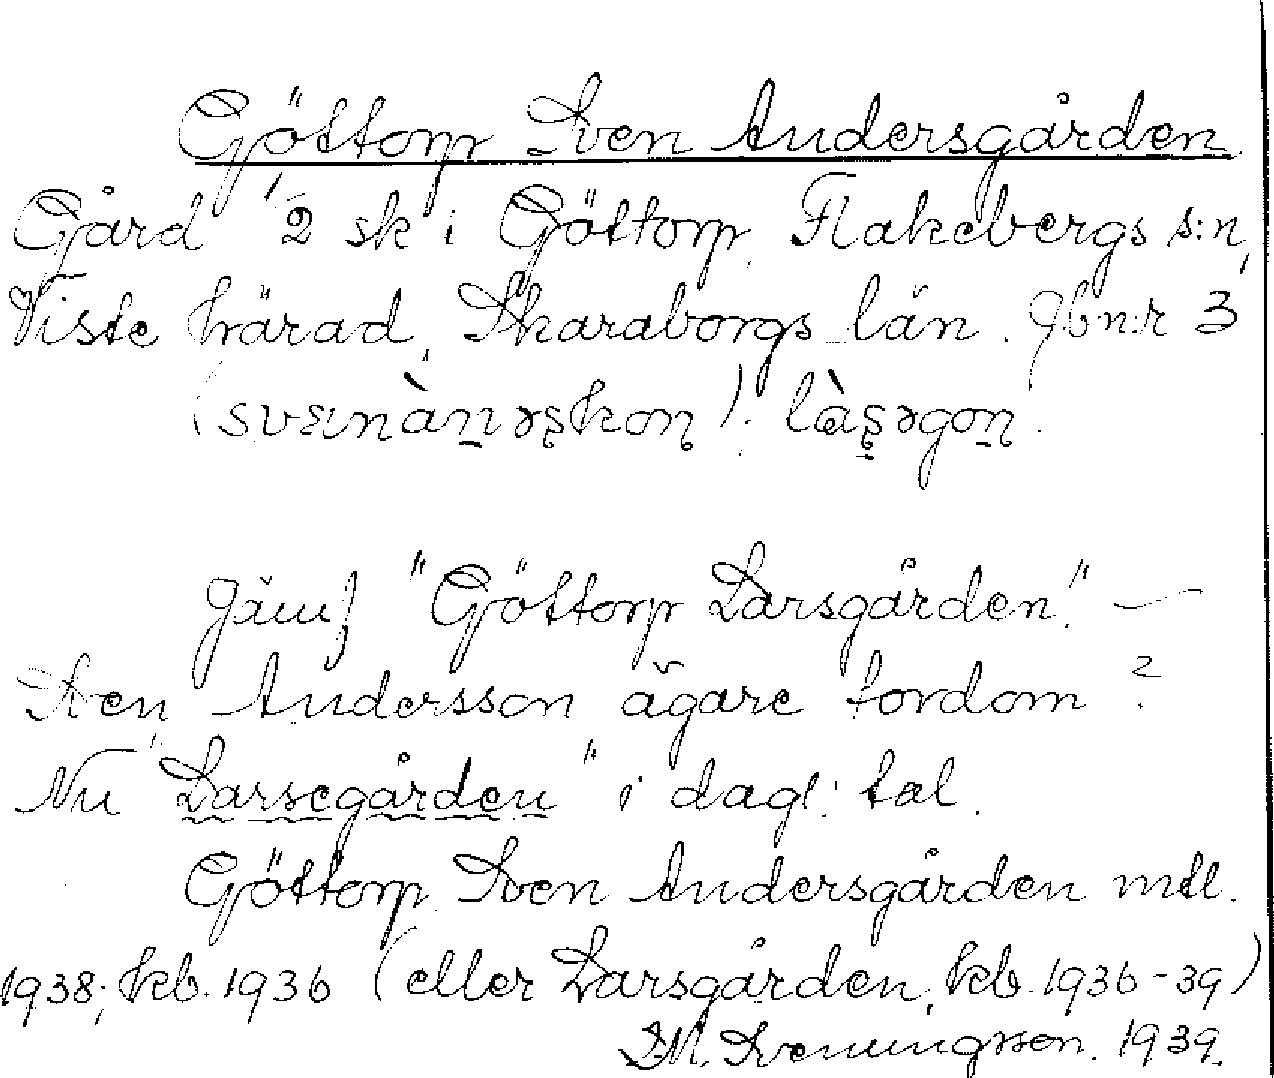 Göttorp Sven Andersgården.
Gård 1/2 sk i Göttorp, Flakebergs s:n,
Viste härad, Skaraborgs län. Jbn:r 3
(svænàn̠ərs̠kon̠). làs̠əgon̠.
Jämf "Göttorp Larsgården." —
Sven Andersson ägare fordom?
Nu "Larsegården" i dagl. tal.
Göttorp Sven Andersgården mtl.
1938; kb. 1936 (eller Larsgården, kb. 1936-39)
I.M. Svenungsson. 1939.